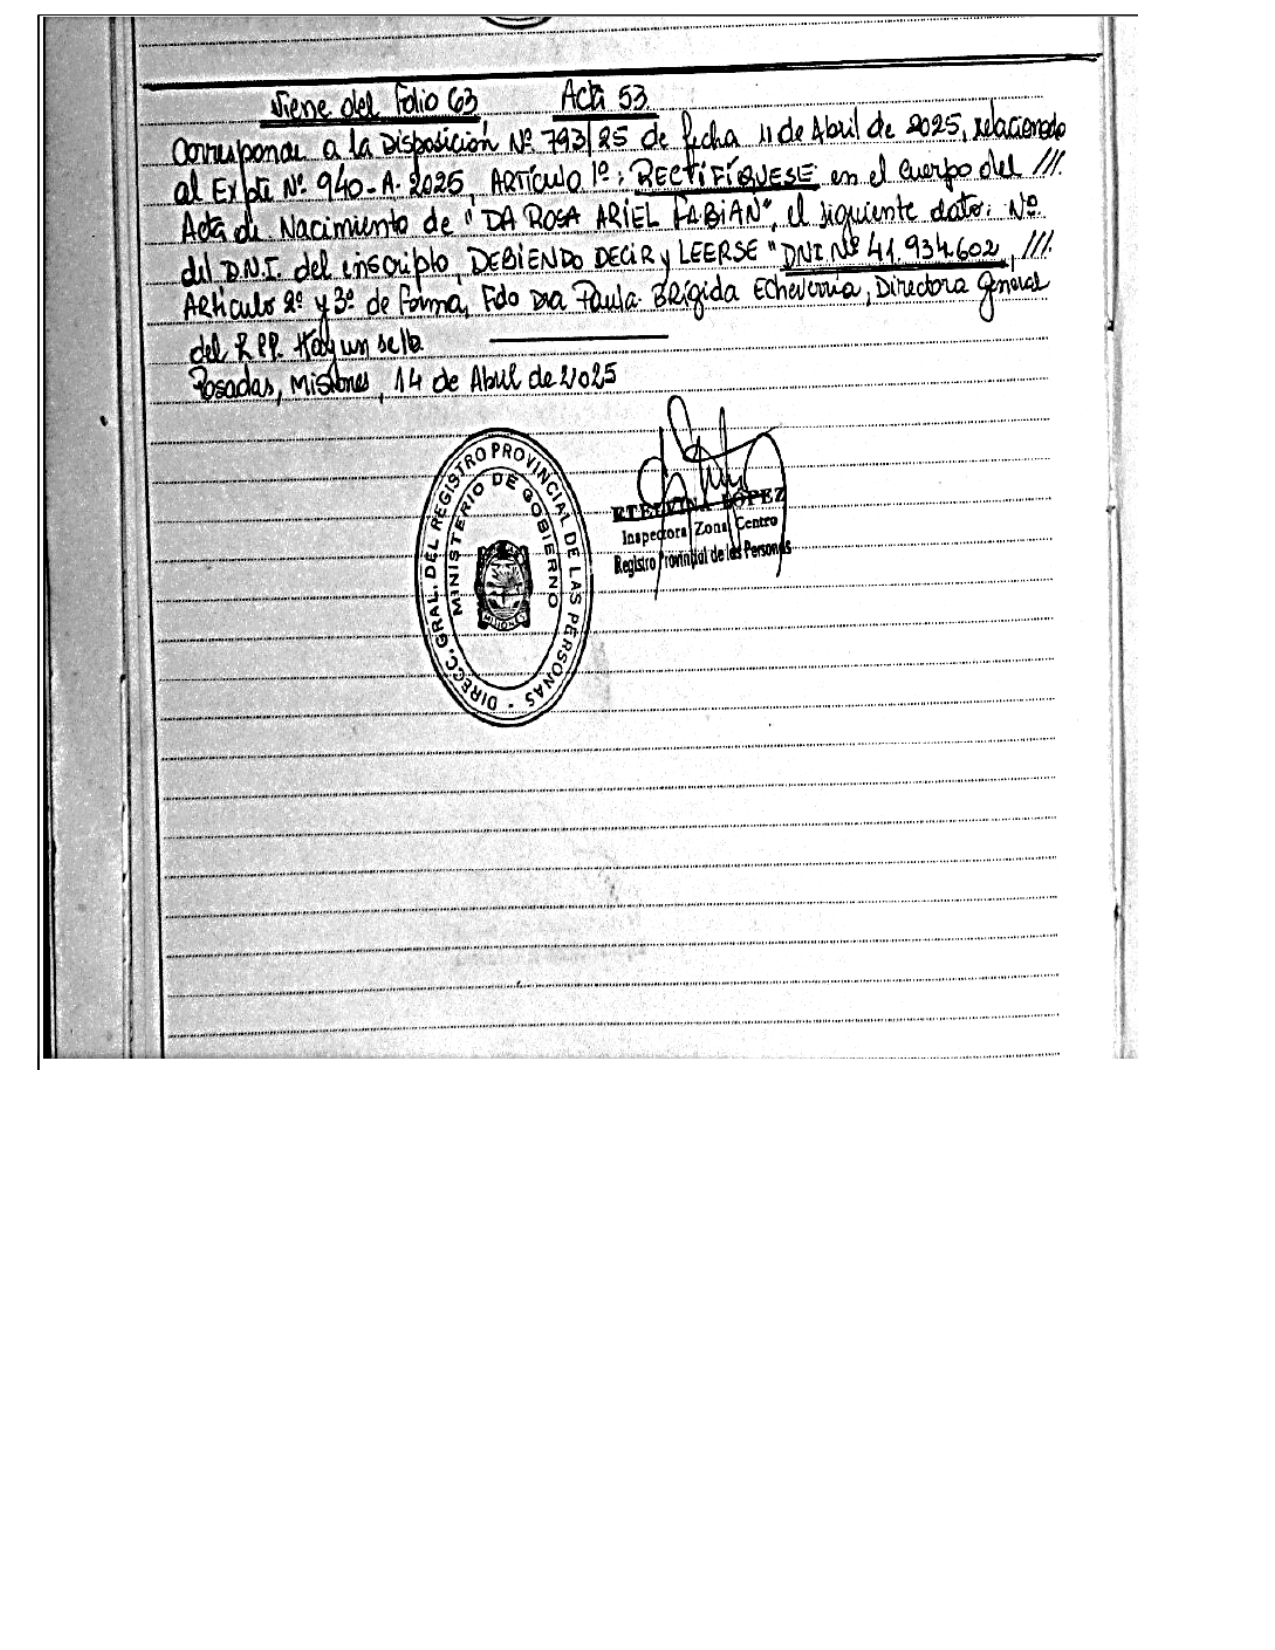 Viene del Folio 63 Acta 53.
Corresponde a la Disposición Nº 793/25 de fecha 11 de Abril de 2025, relacionado
al Expte Nº 940-A-2025, ARTÍCULO 1º: RECTIFÍQUESE en el cuerpo del ///.
Acta de Nacimiento de "DA ROSA ARIEL FABIAN", el siguiente dato: Nº
del D.N.I. del inscripto, DEBIENDO DECIR y LEERSE "DNI Nº 41.934.602, ///.
Artículo 2º y 3º de Forma, Fdo Dra Paula Brígida Echeverria, Directora General
del R.P.P. Hay un sello.
Posadas, Misiones, 14 de Abril de 2025
DIRECC. GRAL. DEL REGISTRO PROVINCIAL DE LAS PERSONAS -
MINISTERIO DE GOBIERNO
MISIONES
ETELVINA LÓPEZ
Inspectora Zona Centro
Registro Provincial de las Personas